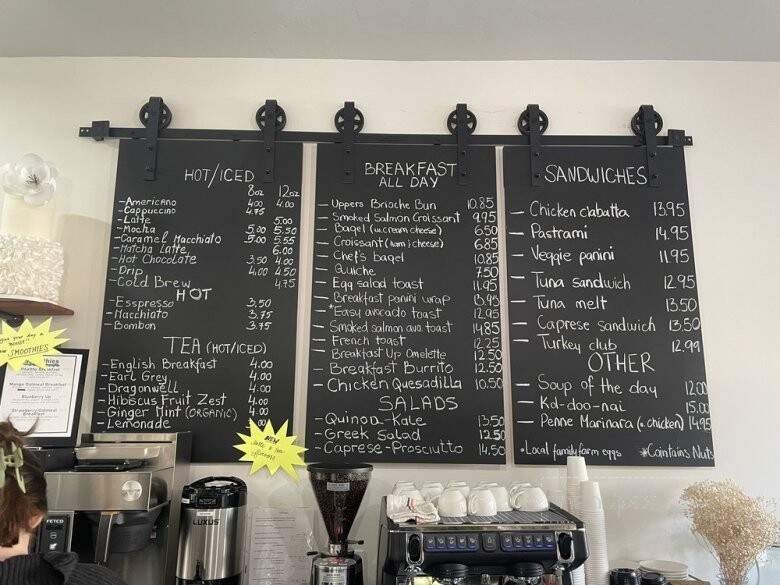 HOT/ICED
8oz 12oz
-Americano 4.00 4.00
-Cappuccino 4.75
-Latte 5.00
-Mocha 5.00 5.50
-Caramel Macchiato 5.00 5.55
-Matcha Latte 6.00
-Hot Chocolate 3.50 4.00
-Drip 4.00 4.50
-Cold Brew 4.75
HOT
-Esspresso 3.50
-Macchiato 3.75
-Bombon 3.75
TEA (HOT/ICED)
-English Breakfast 4.00
-Earl Grey 4.00
-Dragonwell 4.00
-Hibiscus Fruit Zest 4.00
-Ginger Mint (ORGANIC) 4.00
-Lemonade 4.00
BREAKFAST
ALL DAY
- Uppers Brioche Bun 10.85
- Smoked Salmon Croissant 9.95
- Bagel (w. cream cheese) 6.50
- Croissant (ham) (cheese) 6.85
- Chef's bagel 10.85
- Quiche 7.50
- Egg salad toast 11.95
- Breakfast panini wrap 13.95
- *Easy avocado toast 12.95
- Smoked salmon avo. toast 14.85
- French toast 12.25
- Breakfast Up Omelette 12.50
- Breakfast Burrito 12.50
- Chicken Quesadilla 10.50
SALADS
- Quinoa-Kale 13.50
- Greek Salad 12.50
- Caprese-Prosciutto 14.50
SANDWICHES
- Chicken ciabatta 13.95
- Pastrami 14.95
- Veggie panini 11.95
- Tuna sandwich 12.95
- Tuna melt 13.50
- Caprese sandwich 13.50
- Turkey club 12.99
OTHER
- Soup of the day 12.00
- Ko-doo-nai 15.00
- Penne Marinara (+ chicken) 14.95
*Local family farm eggs *Contains Nuts
SMOOTHIES
Healthy Breakfast
Mango Oatmeal Breakfast
Blueberry Up
Strawberry Oatmeal
Breakfast
NEW
FETCO
LUXUS